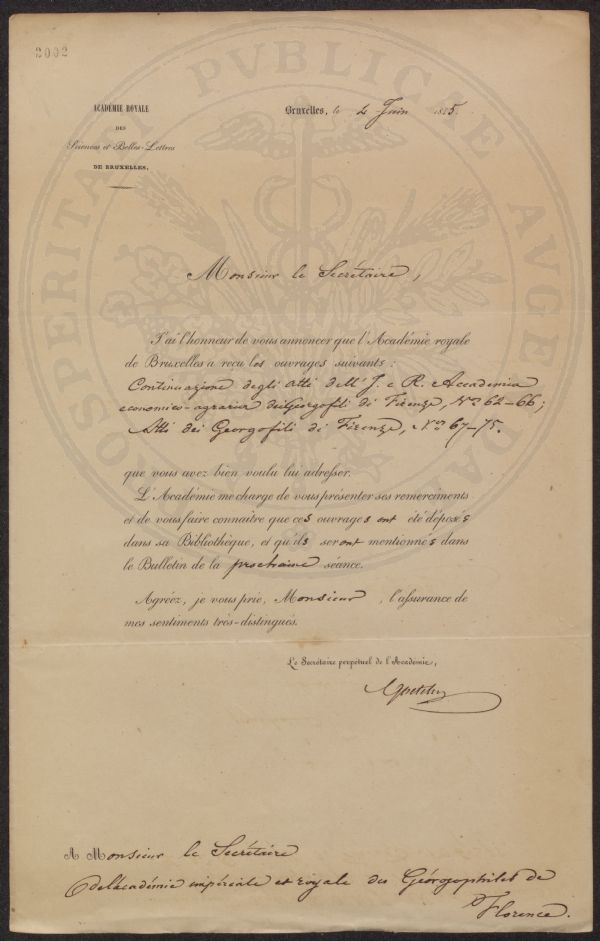 2002
PROSPERITATI PVBLICAE AVGENDAE
ACADÉMIE ROYALE
DES
Sciences et Belles-Lettres
DE BRUXELLES.
Bruxelles, le 2 Juin
Monsieur le Secrétaire,
J'ai l'honneur de vous annoncer que l'Académie royale
de Bruxelles a reçu les ouvrages suivants :
Continuazione degli atti dell' I. e R. Accademia
economico-agraria dei Georgofili di Firenze, Nos 62–66;
Atti dei Georgofili di Firenze, Nos 67–75.
que vous avez bien voulu lui adresser.
L'Académie me charge de vous présenter ses remercîments
et de vous faire connaître que ces ouvrages ont été déposés
dans sa Bibliothèque, et qu'ils seront mentionnés dans
le Bulletin de la prochaine séance.
Agréez, je vous prie, Monsieur , l'assurance de
mes sentiments très-distingués.
Le Secrétaire perpétuel de l'Académie,
Quetelet
A Monsieur le Secrétaire
de l'académie impériale et royale des Géorgophiles de
Florence.